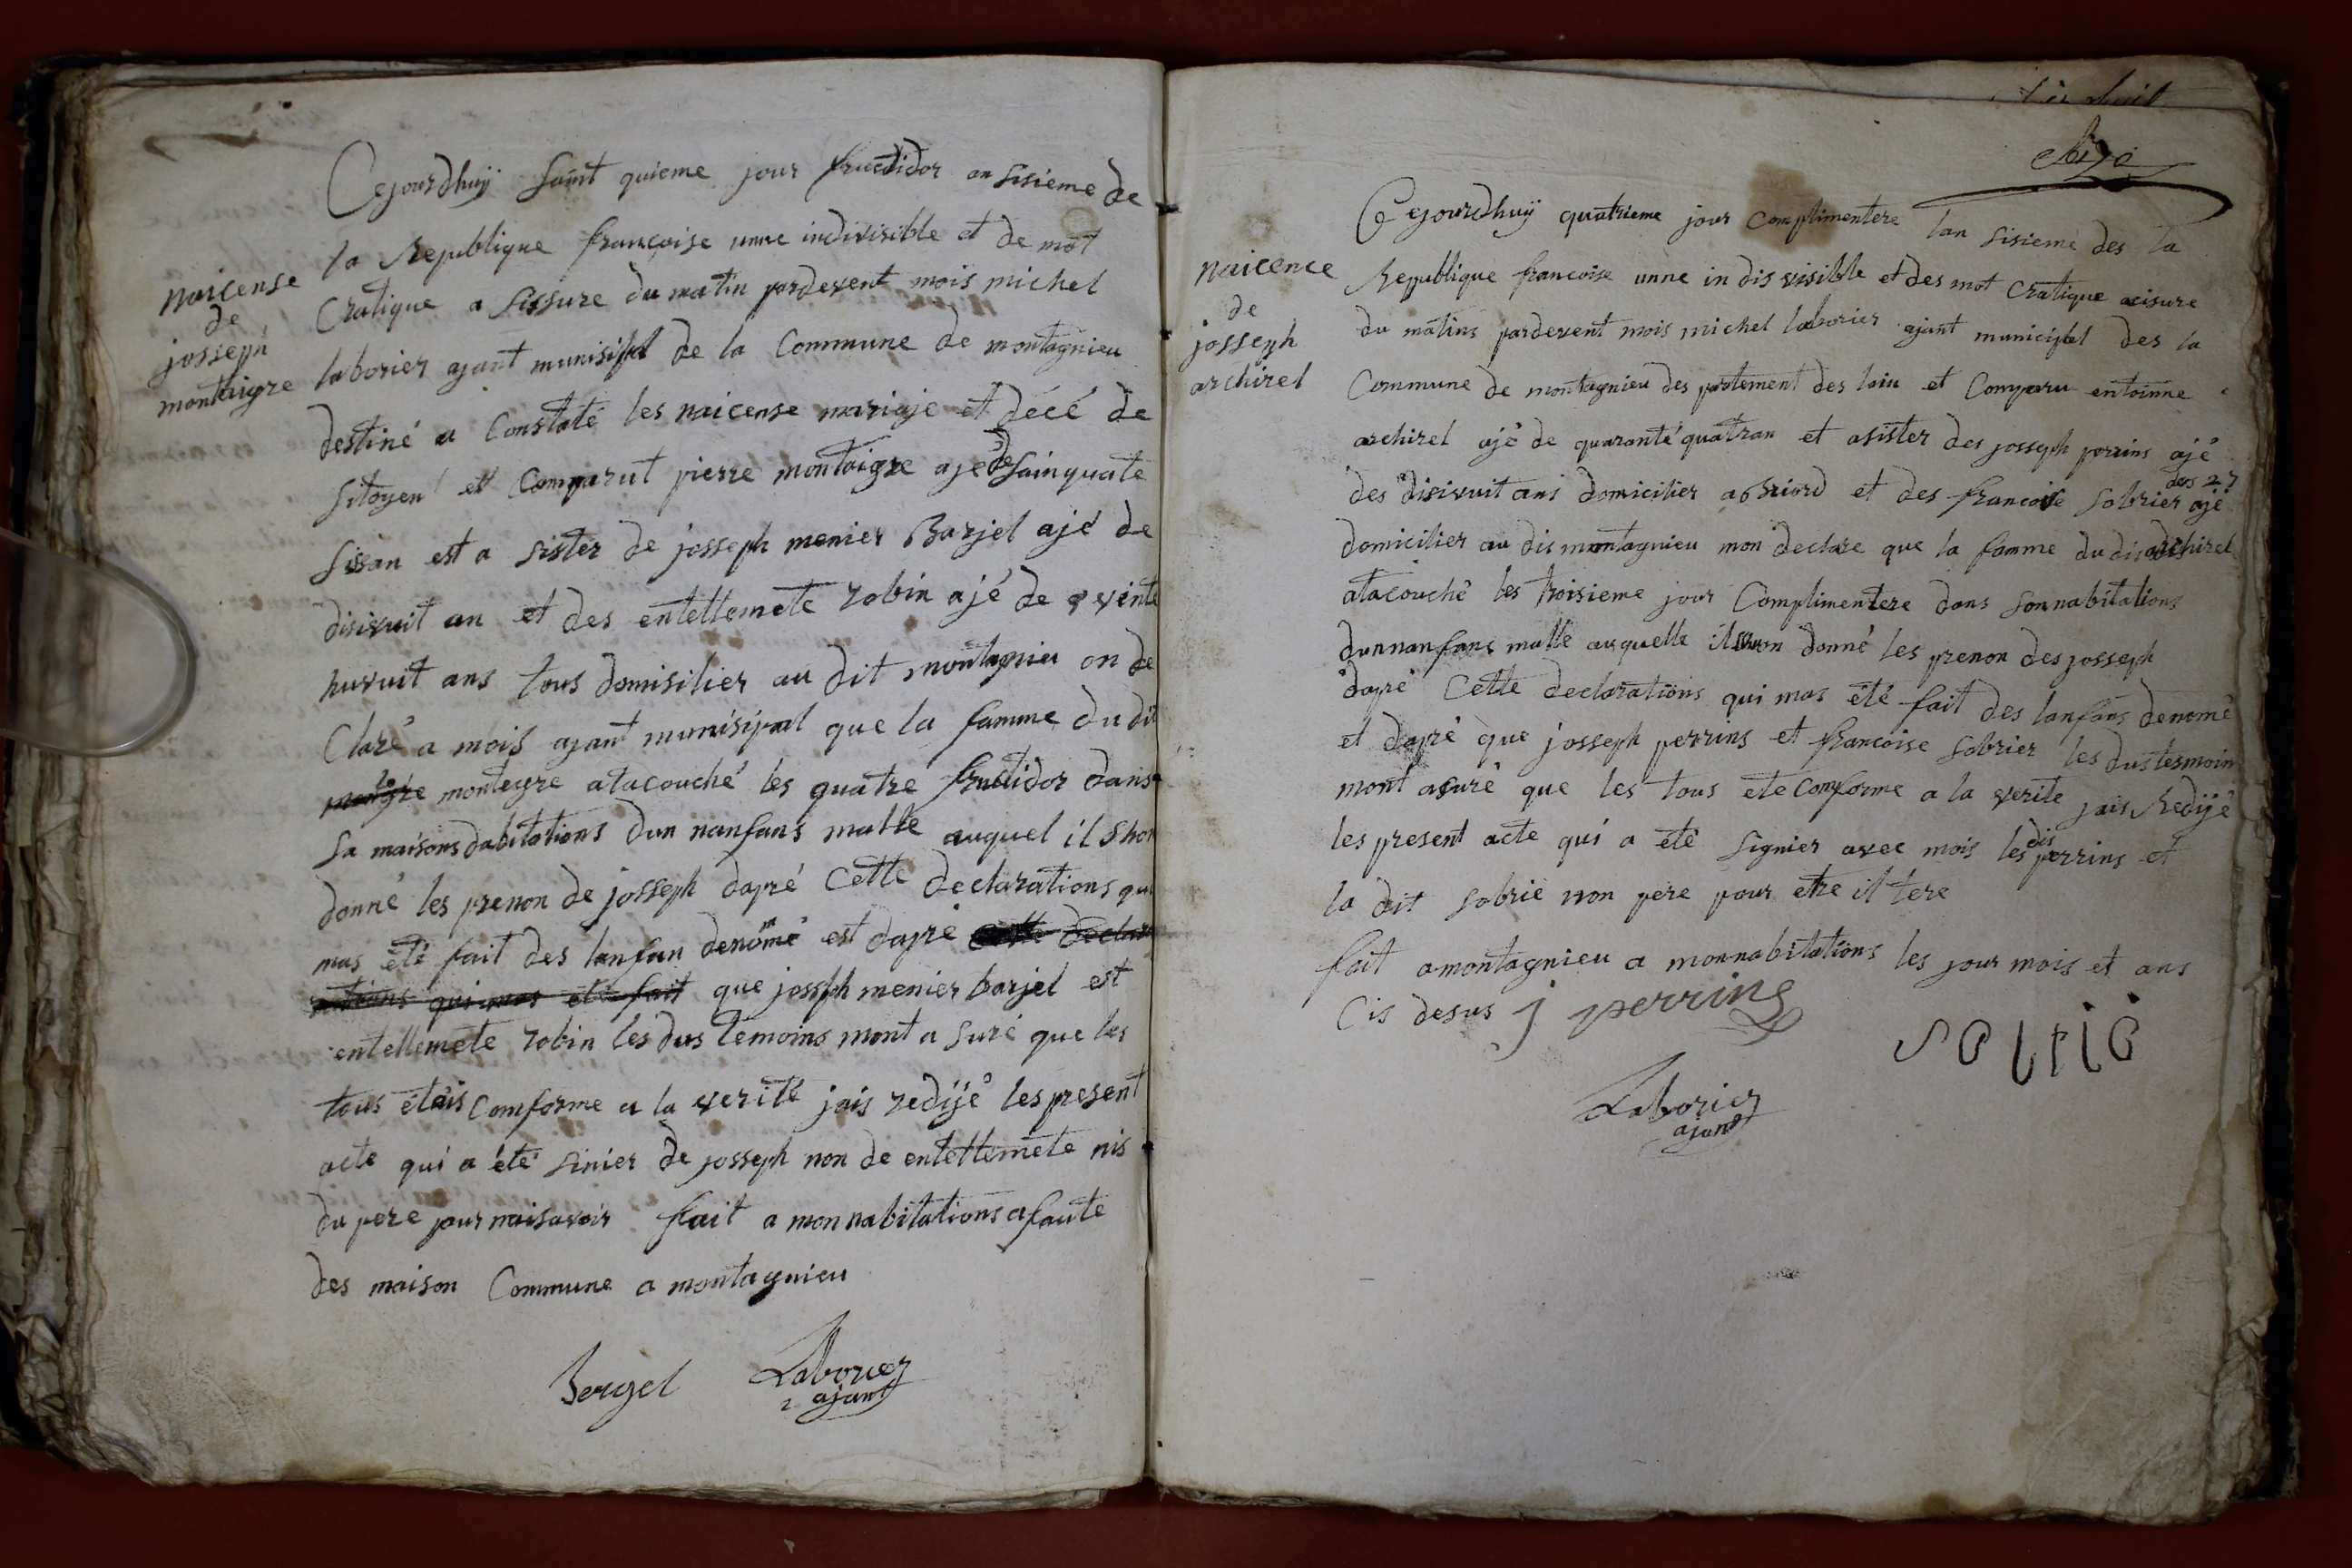 Cejourdhuÿ saint quieme jour fructidor an sisieme de
la Republique françoise unne indivisible et de mot
Cratique a sissure du matin pardevent mois michel
laborier ajant munisipal de la Commune de montagnieu
destiné a Constaté les naicense mariaje et décé de
sitoyen et Comparut pierre montaigre ajé de sainquate
sissan est a sister de josseph menier Barjel ajé de
disivuit an et des entellemete robin ajé de vinte
huvuit ans tous domisilier au dit montagnieu on de
Claré a mois ajant munisipal que la famme du dit
montegre atacouché les quatre fructidor dans
sa maisons dabitations dun nanfans malle auquel il shon
donné les prenon de josseph dapré Cette declarations qui
mas été fait des lanfan denomé est dapré Cette declar
ations qui mas été fait que josseph menier barjel est
entellemete robin les dus temoins mont a suré que les
tous étais Comforme a la verité jais redijé les present
acte qui a été sinier de josseph non de entellemete nis
du pere pour naisavoir fait a mon nabitations a faute
des maison Commune a montagnieu
Bergel Laborier
ajant
naicense
de
josseph
montaigre
huit
Cejourdhuÿ quatrieme jour Complimentere lan sisieme des la
Republique francoise unne in dis visible et des mot Cratique asisure
du matins pardevent mois michel laborier ajant municipal des la
Commune de montagnieu des partement des lain et Comparu entoinne
archirel ajé de quaranté quatran et asister des josseph perrins ajé
des disivuit ans domicilier a Briord et des francoise sobrier ajé
des 27
domicilier au dis montagnieu mon declare que la famme du dis archirel
atacouché les troisieme jour Complimentere dans sonnabitations
dunnanfans malle auquelle il on donné les prenon des josseph
dapré Cette declarations qui mas été fait des lanfans denomé
et dapré que josseph perrins et francoise sobrier les dus tesmoin
mont asuré que les tous ete Comforme a la verite jais Redijé
les present acte qui a été signier avec mois les dis perrins et
la dit sobrie non pere pour etre il tere
fait amontagnieu a monnabitations les jour mois et ans
Cis desus j perrins
Laborier
ajant
naicence
de
josseph
archirel